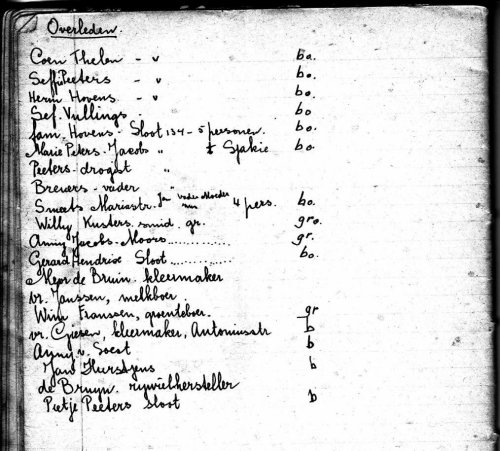 Overleden.
Coen Thelen - v bo.
Seff Peeters - v bo.
Herm Hovens - v bo.
Sef. Vullings bo
fam. Hovens - Sloot 134 - 5 personen. bo.
Marie Peters-Jacobs " + Sjakie bo.
Peeters - drogist "
Brewers - vader "
Smeets Mariastr. Jan Vader Moeder 4 pers. bo.
Willy Kusters smid. gr. gro.
Anny Jacobs-Moors.............. gr.
Gerard Hendrix Sloot.............. bo.
Mevr de Bruin. kleermaker
vr. Janssen, melkboer.
Wim Franssen, groenteboer. gr
vr. Giesen, kleermaker, Antoniusstr b
Anny v. Soest b
Jan Hurstjens b
de Bruyn. rijwielhersteller
Pietje Peeters Sloot b